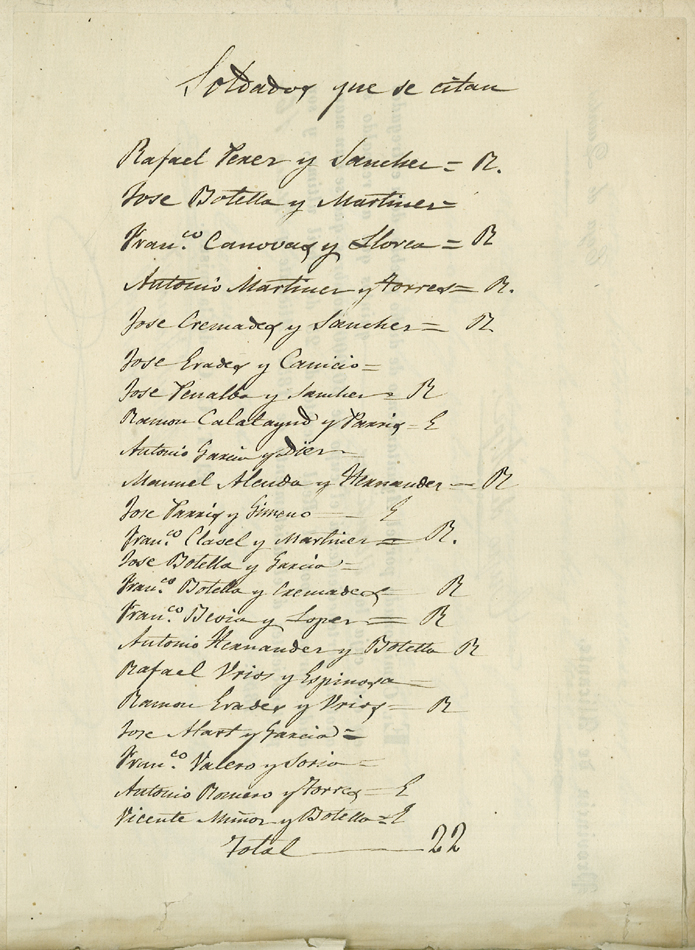 Soldados que se citan
Rafael Perez y Sanchez = R.
Jose Botella y Martinez =
Fran.co Canovas y Llorca = R
Antonio Martinez y Torres = R.
Jose Cremades y Sanchez = R
Jose Erades y Canicio =
Jose Penalba y Sanchez = R
Ramon Calatayud y Parris = E
Antonio Garcia y Diez =
Manuel Alenda y Hernandez — R
Jose Parris y Gimeno — E
Fran.co Clavel y Martinez = R.
Jose Botella y Garcia =
Fran.co Botella y Cremades = R
Fran.co Bevia y Lopez = R
Antonio Hernandez y Botella R
Rafael Vrios y Espinosa =
Ramon Erades y Vrios = R
Jose Alart y Garcia =
Fran.co Valero y Soria =
Antonio Romero y Torres = E
Vicente Muñoz y Botella = E
Total 22